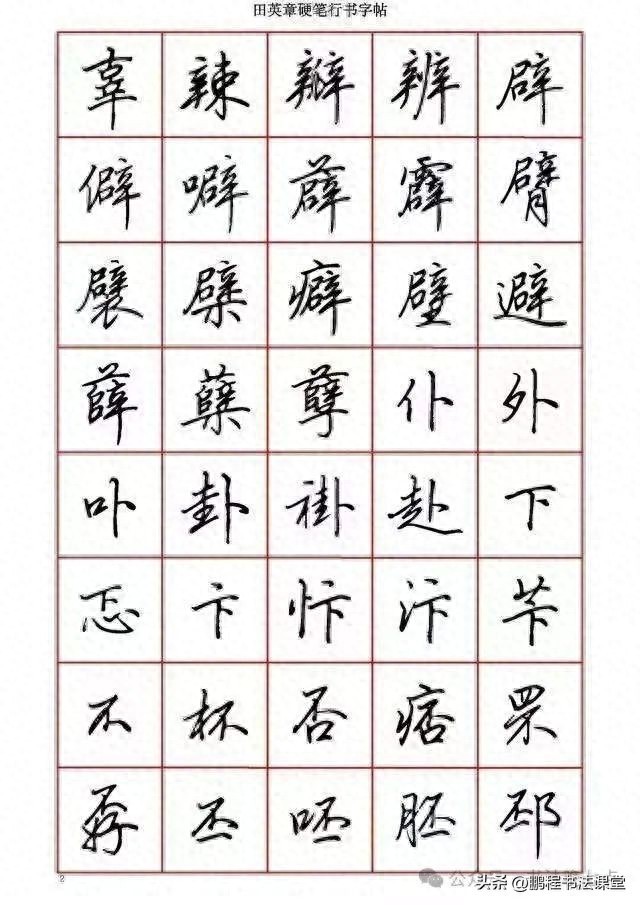 田英章硬笔行书字帖
辜 辣 瓣 辨 辟
僻 噼 薜 霹 臂
襞 檗 癖 壁 避
薛 蘖 孽 仆 外
卟 卦 褂 赴 下
忑 卞 忭 汴 苄
不 杯 否 痞 罘
孬 丕 呸 胚 邳
2
头条 @鹏程书法课堂